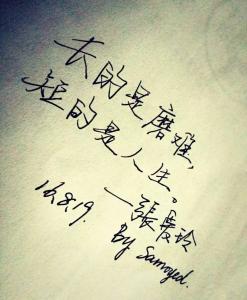 长的是磨难,
短的是人生。
—張爱玲
16.8.19.
By Samoyed.